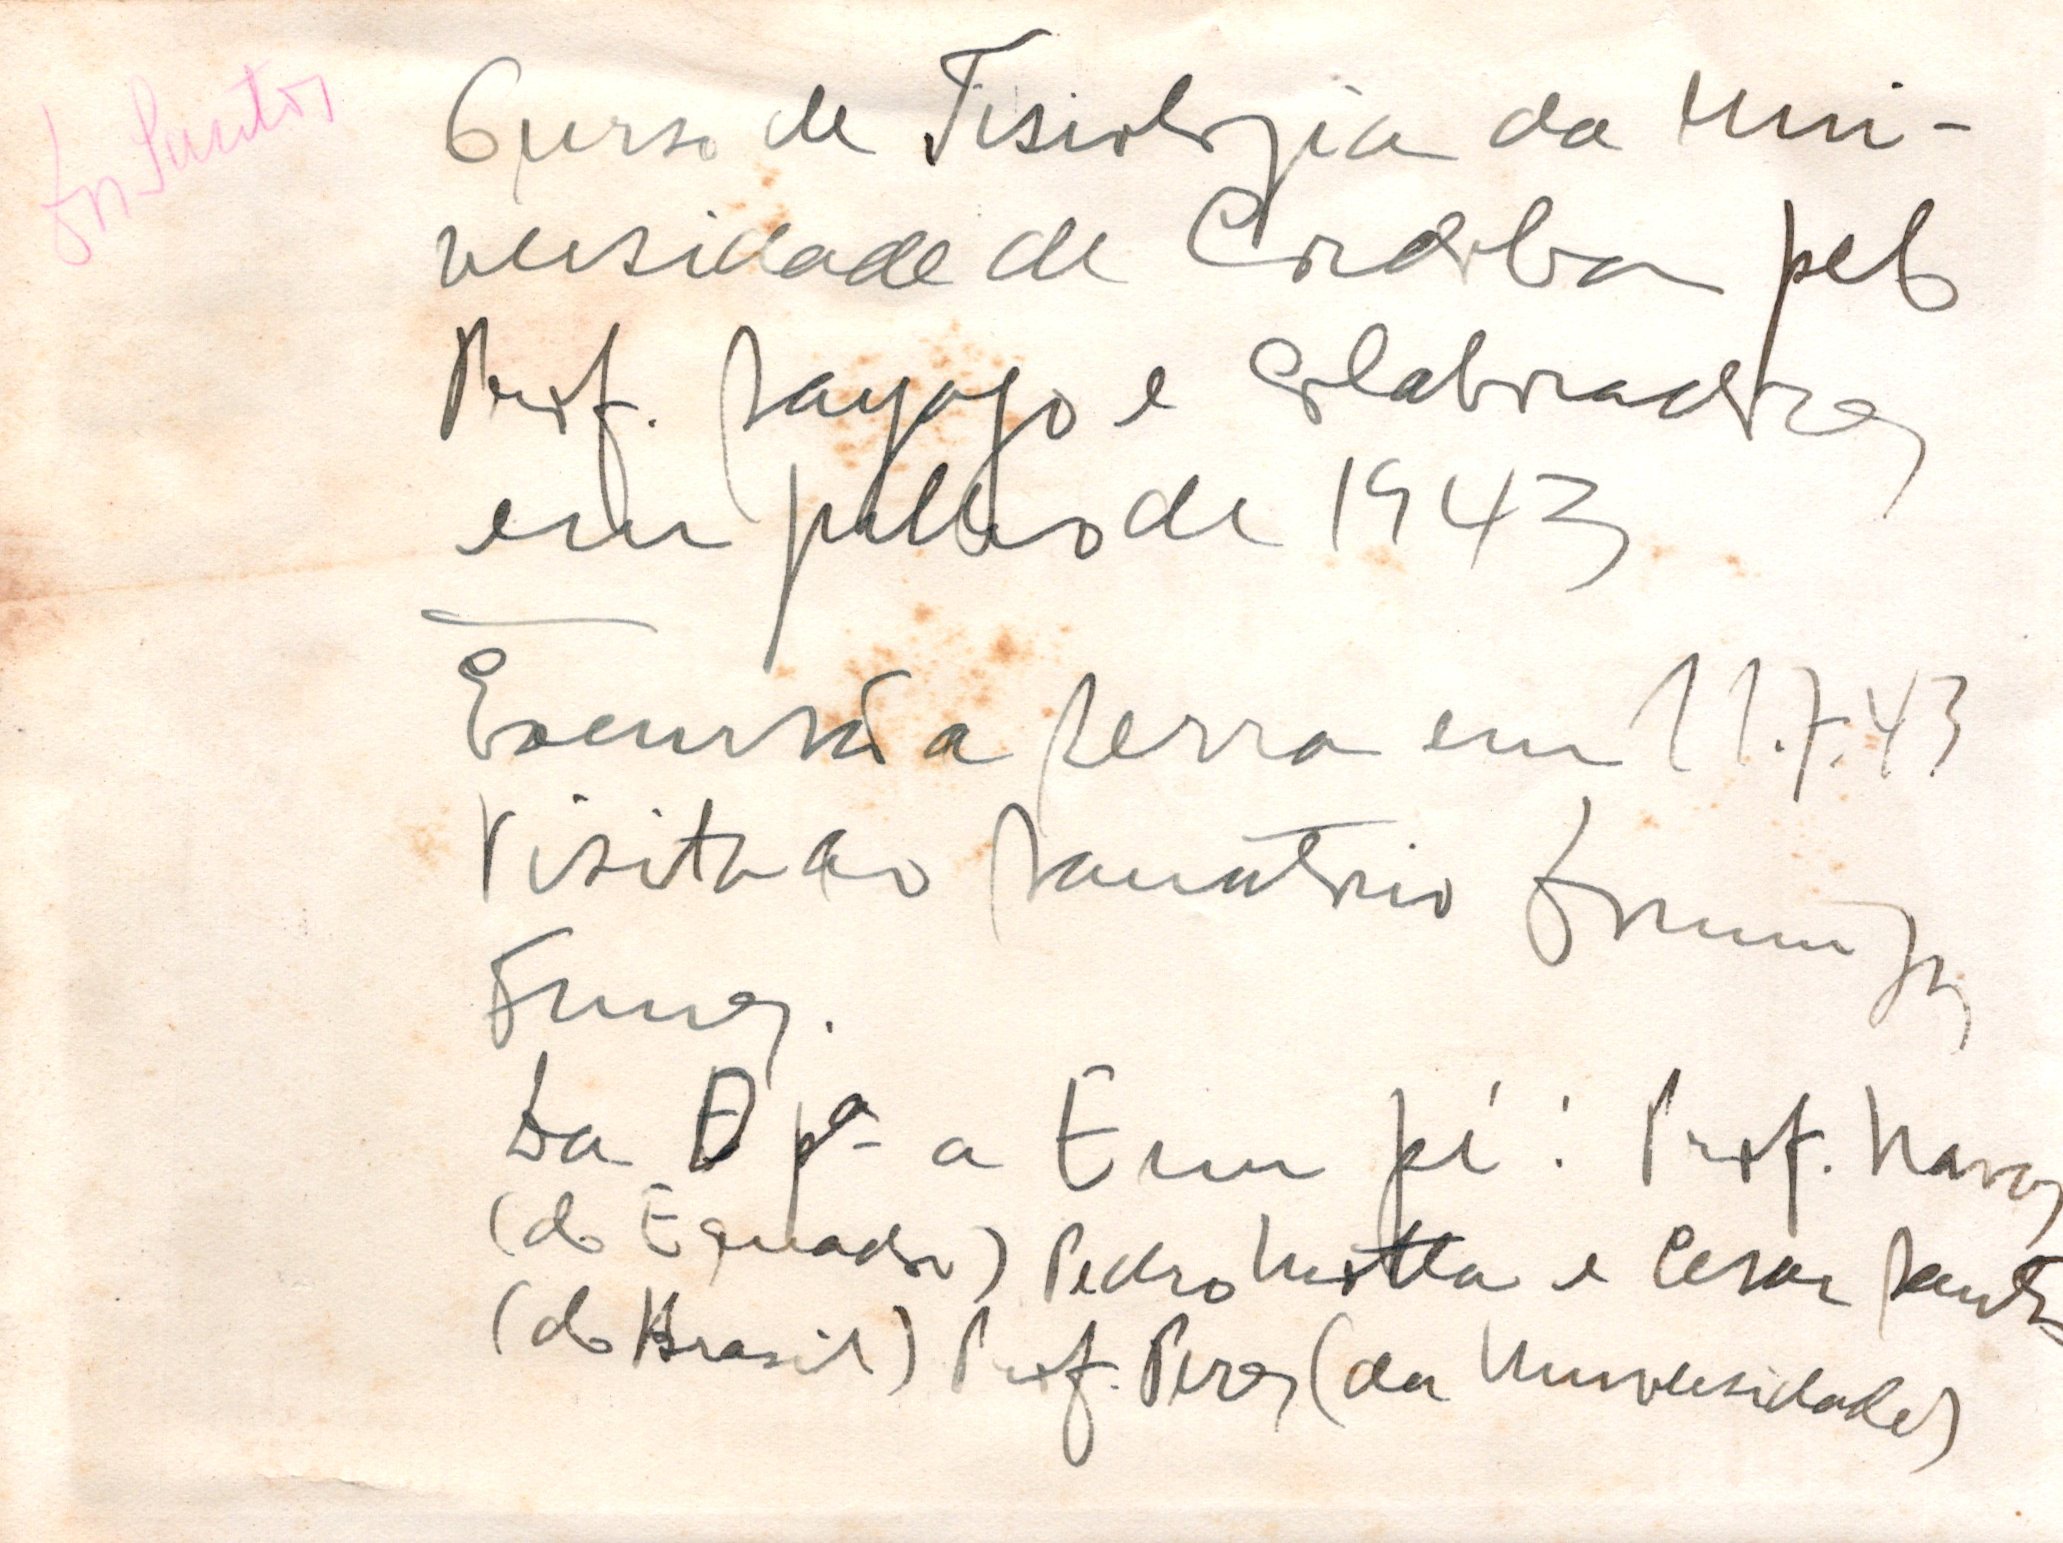 Santos
Curso de Tisiologia da Uni-
versidade de Cordoba pelo
Prof. Sayago e Colaboradores
em julho de 1943
Excursão a serra em 11.7.43
Visita ao Sanatório Domingos
Funes.
Da D pª a E em pé: Prof. Navas
(do Equador) Pedro Motta e Cesar Santos
(do Brasil) Prof. Peres (da Universidade)